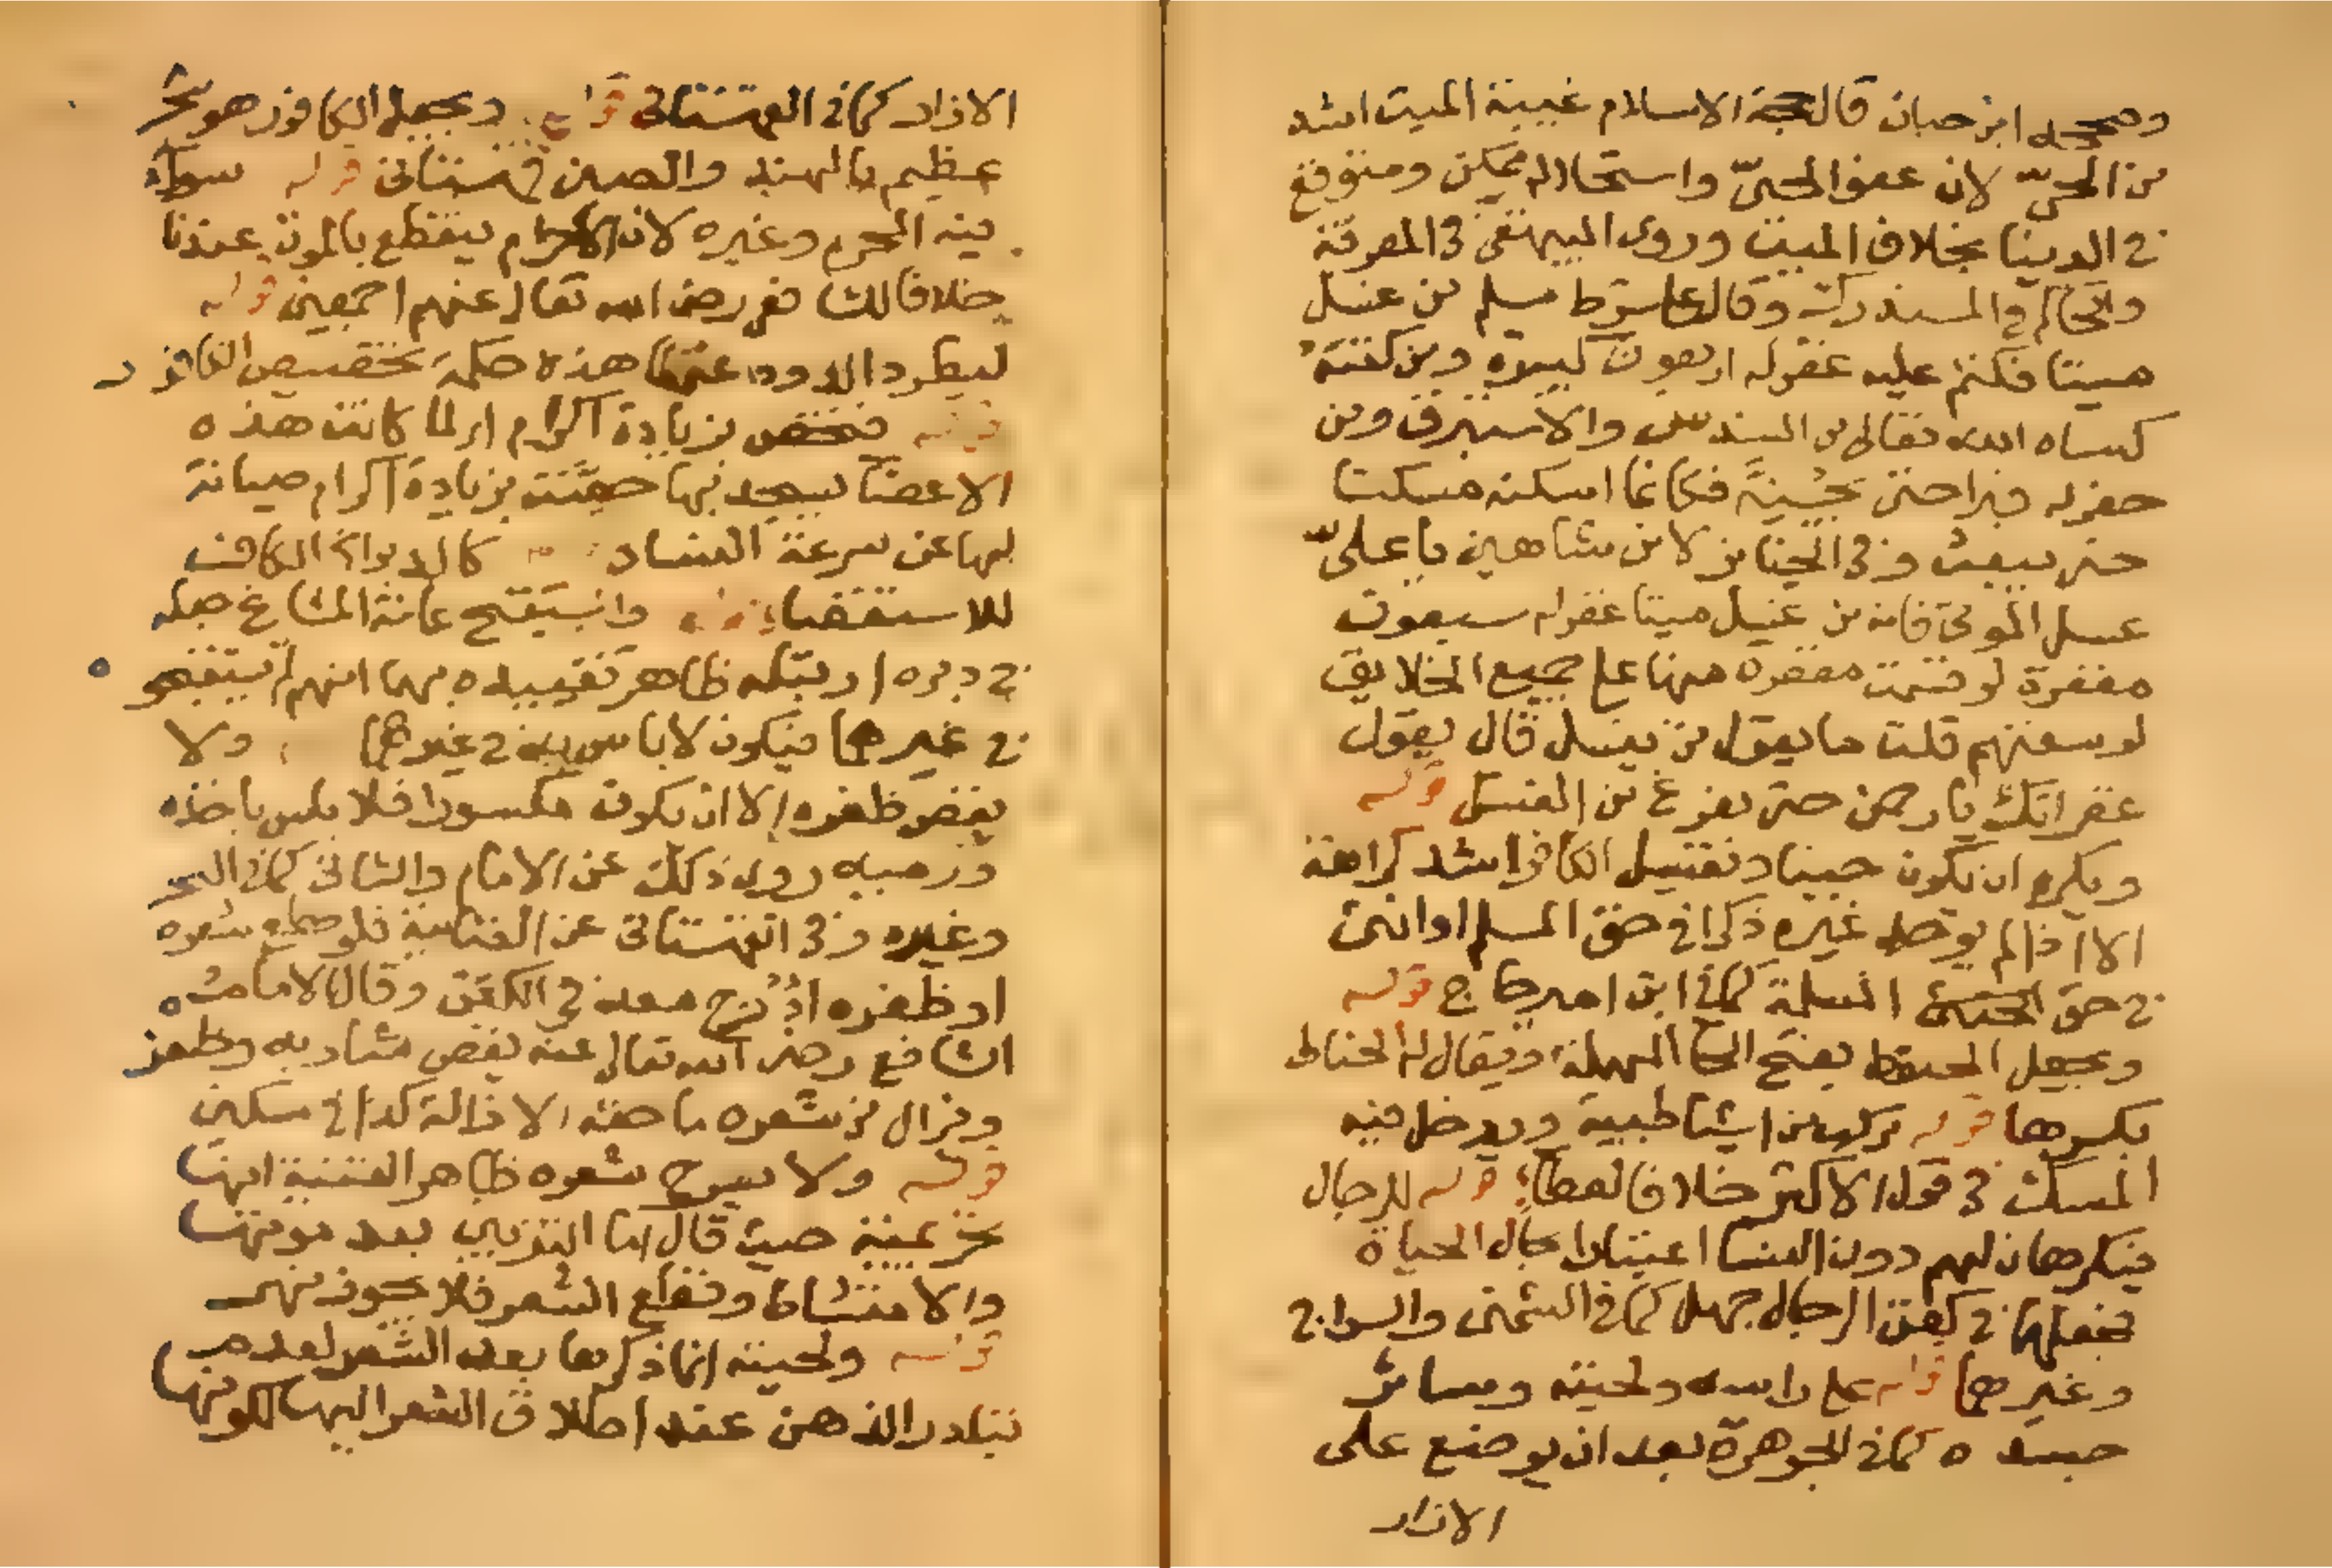 وصححه ابن حبان قال حجة الاسلام غيبة الميت اشد
من الحيّ لان عفو الحيّ واستحلاله ممكن ومتوقع
في الدينا بخلاف الميت وروى البيهقى في المعرفة
والحاكم في المستدرك وقال على شرط مسلم من غسل
ميتا فكتم عليه غفر له اربعون كبيرة ومن كفنه
كساه الله تعالى من السندس والاستبرق ومن
حفر له قبرا حتى يجنه فكانما اسكنه مسكنا
حتى يبعث وفي الجنايز لابن شاهين يا عليّ
غسل الموتى فانه من غسل ميتا غفر له سبعون
مغفرة لو قسمت مغفرة منها على جميع الخلايق
لوسعتهم قلت ما يقول من يغسل قال يقول
غفرانك يا رحمن حتى يفرغ من الغسل قوله
ويكره ان يكون جنبا وتغسيل الكافر اشد كراهة
الا اذا لم يوجد غيره ذكرا في حق المسلم او انثى
في حق الانثى المسلمة كما في ابن امير حاج قوله
ويجعل الحنوط بفتح الحا المهملة ويقال له الحناط
بكسرها قوله مركب من اشيا طيبة ويدخل فيه
المسك في قول الاكثر خلافا لعطا قوله للرجال
فيكرهان لهم دون النسا اعتبارا بحال الحياة
فجعلهما في كفن الرجال جهل كما في الشمنى والسراج
وغيرهما قوله على راسه ولحيته وسائر
جسده كما في الجوهرة بعد ان يوضع على
الازار
الازار كما في القهستانى قوله ويجعل الكافور هو شجر
عظيم بالهند والصين قهستانى قوله سواء
فيه المحرم وغيره لان الاحرام ينقطع بالموت عندنا
خلافا للشافعى رضى الله تعالى عنهم اجمعين قوله
ليطرد الدود عنها هذه حكمة تخصيص الكافور
قوله فتخص بزيادة اكرام اى لما كانت هذه
الاعضا يسجد بها خصت بزيادة اكرام صيانة
لها عن سرعة الفساد كالدبر الى الكاف
للاستقصا قوله واستقبح عامة المشايخ جعله
في دبره او قبله ظاهر تقييده بهما انهم لم يستقبحوه
في غيرهما فيكون لا باس به في غيرهما ولا
يقص ظفره الا ان يكون مكسورا فلا باس باخذه
ورميه روى ذلك عن الامام والثانى كما في البحر
وغيره وفي القهستانى عن العتابية فلو قطع شعره
او ظفره ادرج معه في الكفن وقال الامام
الشافعى رضى الله تعالى عنه يقص شاربه وظفره
ويزال من شعره ما حقه الازالة كذا في مسكين
قوله ولا يسرح شعره ظاهر القنية انها
تحريمية حيث قال اما التزيين بعد موتها
والامتشاط وقطع الشعر فلا يجوز نهر
قوله ولحيته انما ذكرها بعد الشعر لعدم
تبادر الذهن عند اطلاق الشعر اليها لكونها